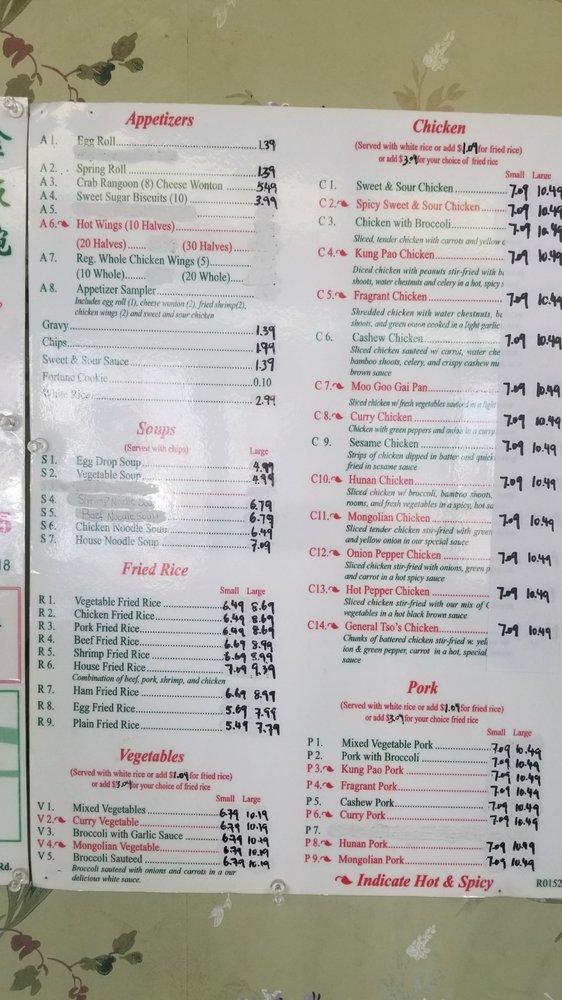 Appetizers
A 1. Egg Roll 1.39
A 2. Spring Roll 1.39
A 3. Crab Rangoon (8) Cheese Wonton 5.49
A 4. Sweet Sugar Biscuits (10) 3.99
A 5.
A 6. Hot Wings (10 Halves)
(20 Halves) (30 Halves)
A 7. Reg. Whole Chicken Wings (5)
(10 Whole) (20 Whole)
A 8. Appetizer Sampler
Includes egg roll (1), cheese wonton (2), fried shrimp(2),
chicken wings (2) and sweet and sour chicken
Gravy 1.39
Chips 1.99
Sweet & Sour Sauce 1.39
Fortune Cookie 0.10
White Rice 2.99
Soups
(Served with chips)
Large
S 1. Egg Drop Soup 4.99
S 2. Vegetable Soup 4.99
S 4. Shrimp Noodle Soup 6.79
S 5. Beef Noodle Soup 6.79
S 6. Chicken Noodle Soup 6.49
S 7. House Noodle Soup 7.09
Fried Rice
Small Large
R 1. Vegetable Fried Rice 6.49 8.69
R 2. Chicken Fried Rice 6.49 8.69
R 3. Pork Fried Rice 6.49 8.69
R 4. Beef Fried Rice 6.69 8.99
R 5. Shrimp Fried Rice 6.69 8.99
R 6. House Fried Rice 7.09 9.39
Combination of beef, pork, shrimp, and chicken
R 7. Ham Fried Rice 6.69 8.99
R 8. Egg Fried Rice 5.69 7.99
R 9. Plain Fried Rice 5.49 7.79
Vegetables
(Served with white rice or add $1.09 for fried rice)
or add $3.09 for your choice of fried rice
Small Large
V 1. Mixed Vegetables 6.79 10.19
V 2. Curry Vegetable 6.79 10.19
V 3. Broccoli with Garlic Sauce 6.79 10.19
V 4. Mongolian Vegetable 6.79 10.19
V 5. Broccoli Sauteed 6.79 10.19
Broccoli sauteed with onions and carrots in a our
delicious white sauce.
Chicken
(Served with white rice or add $1.09 for fried rice)
or add $3.09 for your choice of fried rice
Small Large
C 1. Sweet & Sour Chicken 7.09 10.49
C 2. Spicy Sweet & Sour Chicken 7.09 10.49
C 3. Chicken with Broccoli 7.09 10.49
Sliced, tender chicken with carrots and yellow
C 4. Kung Pao Chicken 7.09 10.49
Diced chicken with peanuts stir-fried with
shoots, water chestnuts and celery in a hot, spicy
C 5. Fragrant Chicken 7.09 10.49
Shredded chicken with water chestnuts,
shoots, and green onion cooked in a light garlic
C 6. Cashew Chicken 7.09 10.49
Sliced chicken sauteed w/ carrot, water
bamboo shoots, celery, and crispy cashew
brown sauce
C 7. Moo Goo Gai Pan 7.09 10.49
Sliced chicken w/ fresh vegetables sauteed in a light
C 8. Curry Chicken 7.09 10.49
Chicken with green peppers and onion in a curry
C 9. Sesame Chicken 7.09 10.49
Strips of chicken dipped in batter and
fried in sesame sauce
C10. Hunan Chicken 7.09 10.49
Sliced chicken w/ broccoli, bamboo shoots,
rooms, and fresh vegetables in a spicy, hot
C11. Mongolian Chicken 7.09 10.49
Sliced tender chicken stir-fried with green
and yellow onion in our special sauce
C12. Onion Pepper Chicken 7.09 10.49
Sliced chicken stir-fried with onions, green
and carrot in a hot spicy sauce
C13. Hot Pepper Chicken 7.09 10.49
Sliced chicken stir-fried with our mix of
vegetables in a hot black brown sauce
C14. General Tso's Chicken 7.09 10.49
Chunks of battered chicken stir-fried w.
ion & green pepper, carrot in a hot, special
sauce
Pork
(Served with white rice or add $1.09 for fried rice)
or add $3.09 for your choice fried rice
Small Large
P 1. Mixed Vegetable Pork 7.09 10.49
P 2. Pork with Broccoli 7.09 10.49
P 3. Kung Pao Pork 7.09 10.49
P 4. Fragrant Pork 7.09 10.49
P 5. Cashew Pork 7.09 10.49
P 6. Curry Pork 7.09 10.49
P 7.
P 8. Hunan Pork 7.09 10.49
P 9. Mongolian Pork 7.09 10.49
Indicate Hot & Spicy
R0152
18
Rd.